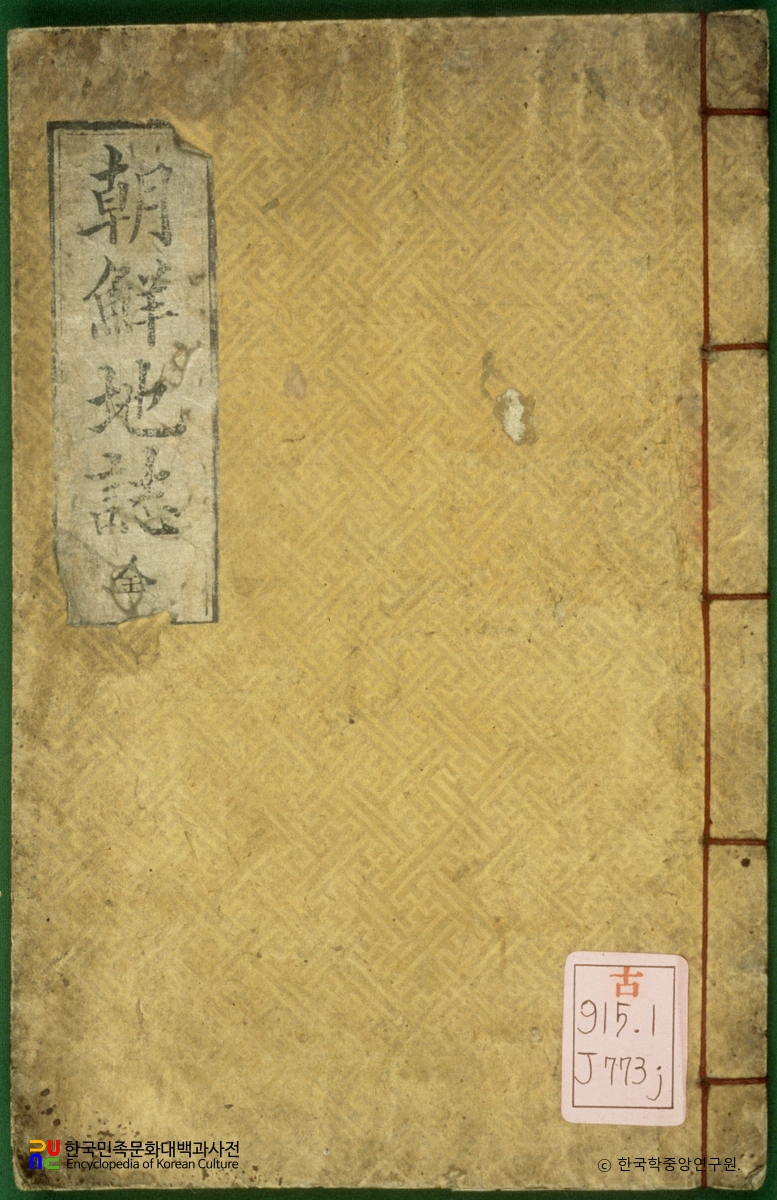 朝鮮地誌 全
古
915.1
J773j
한국민족문화대백과사전
Encyclopedia of Korean Culture
ⓒ 한국학중앙연구원.